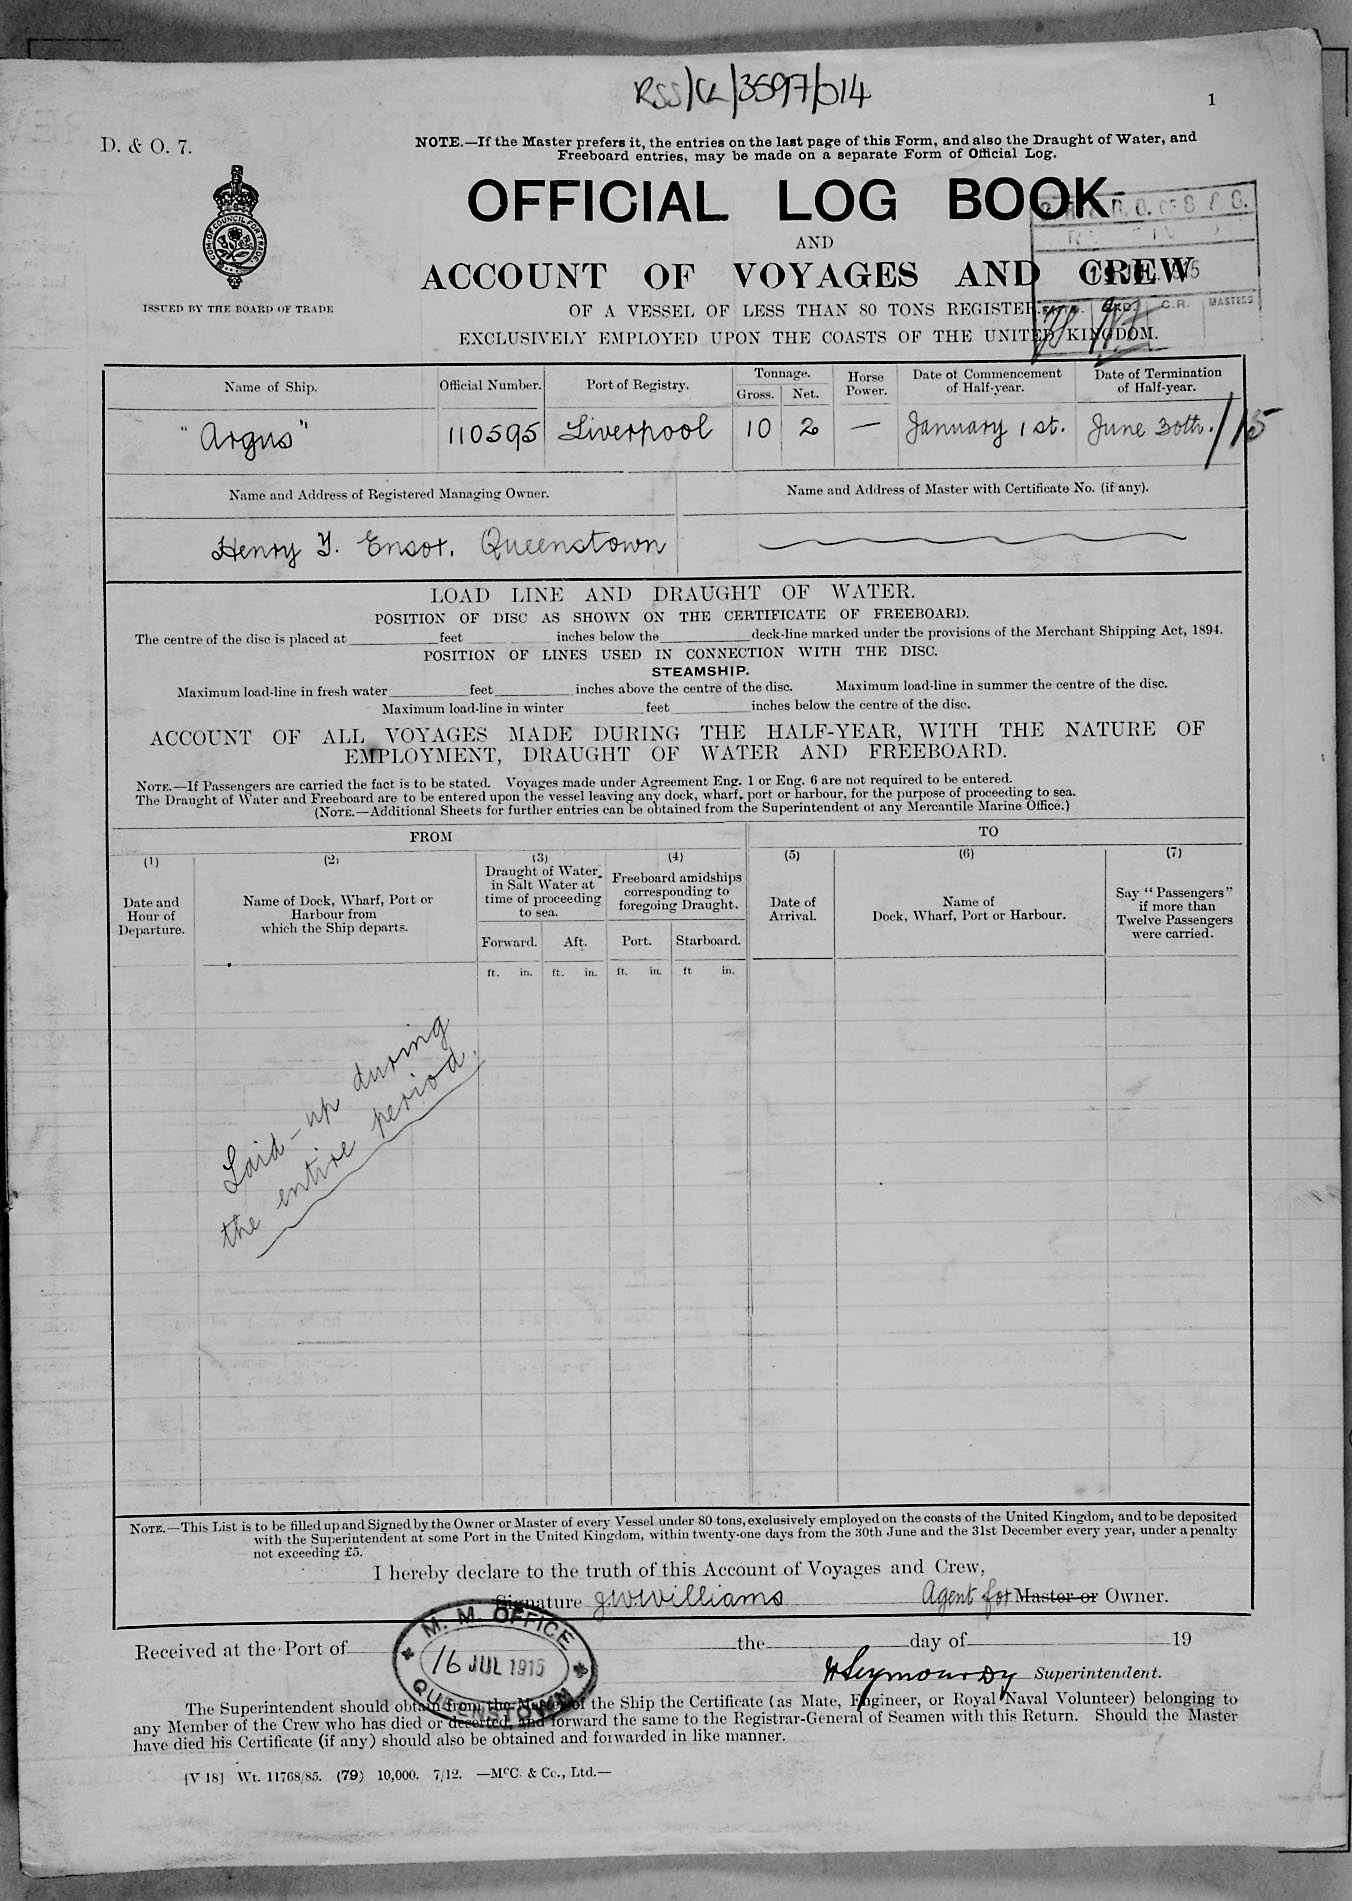 RSS/CL/3597/014
1
D. & O. 7.
NOTE.—If the Master prefers it, the entries on the last page of this Form, and also the Draught of Water, and
Freeboard entries, may be made on a separate Form of Official Log.
OFFICIAL LOG BOOK
AND
ACCOUNT OF VOYAGES AND CREW
ISSUED BY THE BOARD OF TRADE
OF A VESSEL OF LESS THAN 80 TONS REGISTER
C.R. MASTERS
EXCLUSIVELY EMPLOYED UPON THE COASTS OF THE UNITED KINGDOM.
Name of Ship. Official Number. Port of Registry. Tonnage. Gross. Net. Horse Power. Date of Commencement of Half-year. Date of Termination of Half-year.
"Argus" 110595 Liverpool 10 2 — January 1st. June 30th. /15
Name and Address of Registered Managing Owner. Name and Address of Master with Certificate No. (if any).
Henry Y. Ensor. Queenstown
LOAD LINE AND DRAUGHT OF WATER.
POSITION OF DISC AS SHOWN ON THE CERTIFICATE OF FREEBOARD.
The centre of the disc is placed at feet inches below the deck-line marked under the provisions of the Merchant Shipping Act, 1894.
POSITION OF LINES USED IN CONNECTION WITH THE DISC.
STEAMSHIP.
Maximum load-line in fresh water feet inches above the centre of the disc. Maximum load-line in summer the centre of the disc.
Maximum load-line in winter feet inches below the centre of the disc.
ACCOUNT OF ALL VOYAGES MADE DURING THE HALF-YEAR, WITH THE NATURE OF
EMPLOYMENT, DRAUGHT OF WATER AND FREEBOARD.
NOTE.—If Passengers are carried the fact is to be stated. Voyages made under Agreement Eng. 1 or Eng. 6 are not required to be entered.
The Draught of Water and Freeboard are to be entered upon the vessel leaving any dock, wharf, port or harbour, for the purpose of proceeding to sea.
(NOTE.—Additional Sheets for further entries can be obtained from the Superintendent of any Mercantile Marine Office.)
FROM TO
(1) (2) (3) (4) (5) (6) (7)
Date and Hour of Departure.
Name of Dock, Wharf, Port or Harbour from which the Ship departs.
Draught of Water in Salt Water at time of proceeding to sea.
Freeboard amidships corresponding to foregoing Draught.
Date of Arrival.
Name of Dock, Wharf, Port or Harbour.
Say "Passengers" if more than Twelve Passengers were carried.
Forward. Aft. Port. Starboard.
ft. in. ft. in. ft. in. ft in.
Laid-up during
the entire period.
NOTE.—This List is to be filled up and Signed by the Owner or Master of every Vessel under 80 tons, exclusively employed on the coasts of the United Kingdom, and to be deposited
with the Superintendent at some Port in the United Kingdom, within twenty-one days from the 30th June and the 31st December every year, under a penalty
not exceeding £5.
I hereby declare to the truth of this Account of Voyages and Crew,
Signature J.W.Williams Agent for Master or Owner.
M. M. OFFICE
16 JUL 1915
QUEENSTOWN
Received at the Port of the day of 19
Superintendent.
The Superintendent should obtain from the Master of the Ship the Certificate (as Mate, Engineer, or Royal Naval Volunteer) belonging to
any Member of the Crew who has died or deserted, and forward the same to the Registrar-General of Seamen with this Return. Should the Master
have died his Certificate (if any) should also be obtained and forwarded in like manner.
[V 18] Wt. 11768/85. (79) 10,000. 7/12. —McC. & Co., Ltd.—